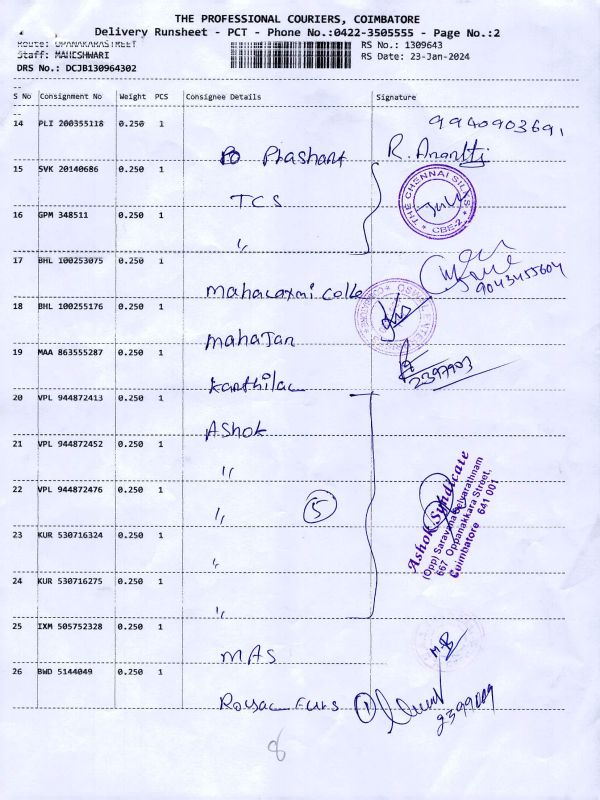 THE PROFESSIONAL COURIERS, COIMBATORE
Delivery Runsheet - PCT - Phone No.:0422-3505555 - Page No.:2
Route: OPANAKARASTREET RS No.: 1309643
Staff: MAHESHWARI RS Date: 23-Jan-2024
DRS No.: DCJB130964302
S No Consignment No Weight PCS Consignee Details Signature
14 PLI 200355118 0.250 1 Prashant R. Anantti 9940903691
15 SVK 20140686 0.250 1 TCS THE CHENNAI SILKS CBE-2
16 GPM 348511 0.250 1 "
17 BHL 100253075 0.250 1 Mahalaxmi Colle 9043455604
18 BHL 100255176 0.250 1 MahaJan
19 MAA 863555287 0.250 1 Kanthilal 2397903
20 VPL 944872413 0.250 1 AShok
21 VPL 944872452 0.250 1 "
22 VPL 944872476 0.250 1 " 5
Ashok Syndicate
(Opp) Saravana Selvarathnam
667 Oppanakkara Street,
Coimbatore 641 001
23 KUR 530716324 0.250 1 "
24 KUR 530716275 0.250 1 "
25 IXM 505752328 0.250 1 MAS
26 BWD 5144049 0.250 1 Royal Furs 1
8